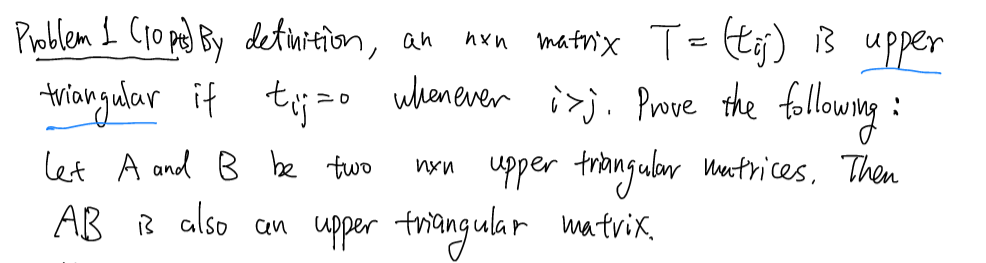 Problem 1 (10 pts) By definition, an n×n matrix T = (tij) is upper
triangular if tij = 0 whenever i>j. Prove the following:
Let A and B be two n×n upper triangular matrices. Then
AB is also an upper triangular matrix.